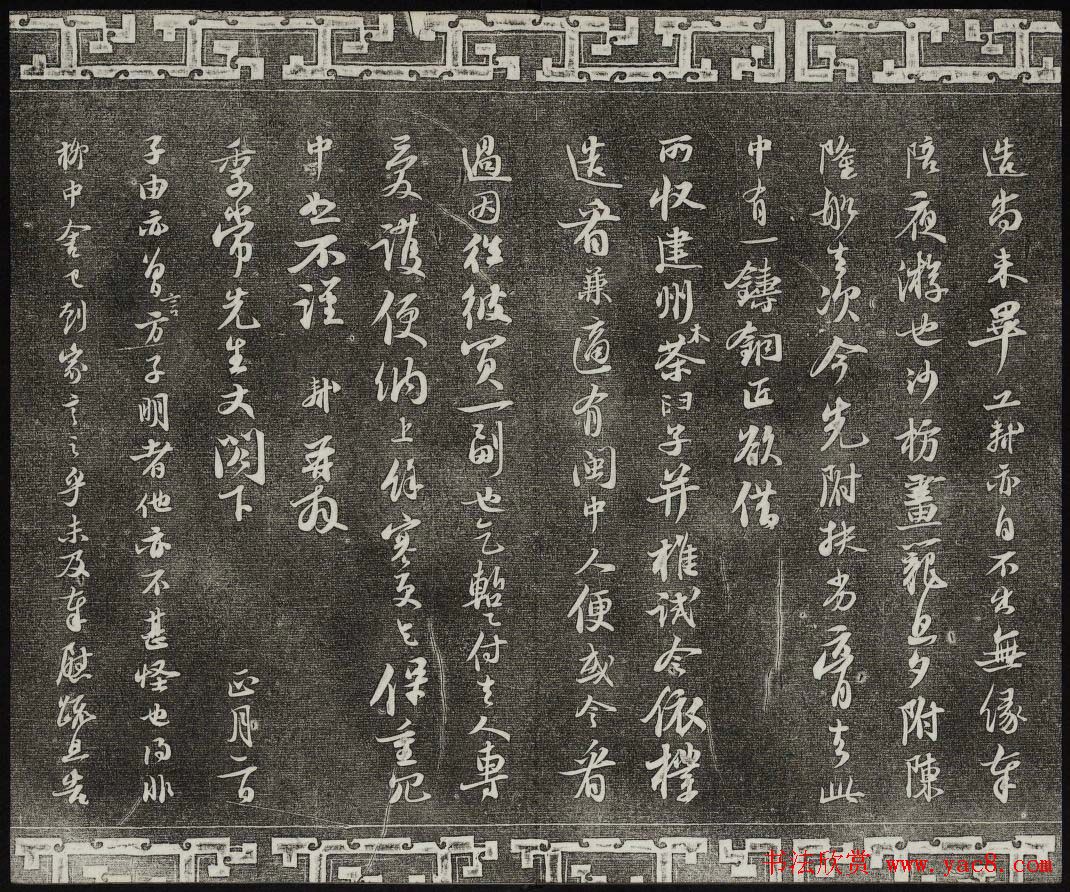 造尚未畢工軾亦自不出無緣奉
陪夜游也沙枋畫籠旦夕附陳
隆船去次今先附扶劣膏去此
中有一鑄銅匠欲借
所收建州木茶臼子并椎試令依樣
造看兼適有閩中人便或令看
過因往彼買一副也乞暫付去人專
愛護便納上餘寒更乞保重冗
中恕不謹 軾再拜
季常先生丈閣下 正月二日
子由亦曾言方子明者他亦不甚怪也得非
柳中舍已到家言之乎未及奉慰疏且告
书法欣赏 www.yac8.com